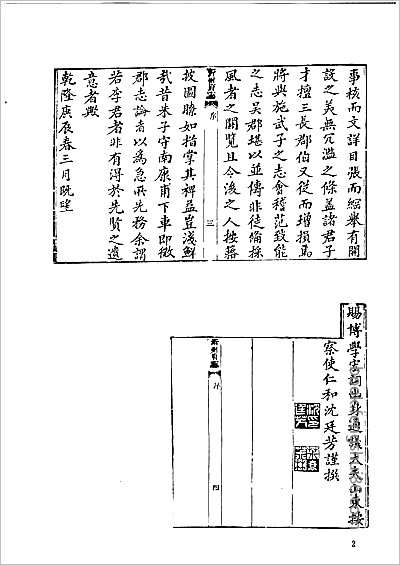 事核而文詳目張而綱舉有開
設之美無冗濫之條蓋諸君子
才擅三長郡伯又從而增損焉
將與施武子之志會稽范致能
之志吳郡堪以並儔非徒備採
風者之閱覽且令後之人按籍
沂州府志 序 三
披圖瞭如指掌其裨益豈淺鮮
哉昔朱子守南康甫下車即徵
郡志論者以為急所先務余謂
若李君者非有得於先賢之遺
意者歟
乾隆庚辰春三月既望
賜博學宏詞出身通議大夫山東按
察使仁和沈廷芳謹撰
沂州府志 序 四
2